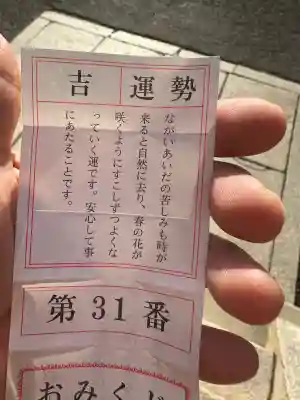 運勢
吉
ながいあいだの苦しみも時が
来ると自然に去り、春の花が
咲くようにすこしずつよくな
っていく運です。安心して事
にあたることです。
第31番
おみくじ